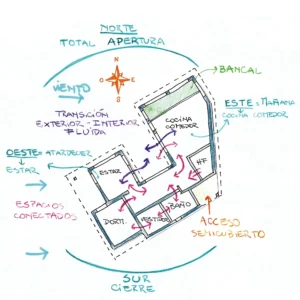 NORTE
TOTAL APERTURA
N
O
E
S
VIENTO
BANCAL
TRANSICIÓN
EXTERIOR-INTERIOR
FLUIDA
COCINA
COMEDOR
ESTE = MAÑANA
COCINA COMEDOR
OESTE = ATARDECER
ESTAR
ESTAR
HF
ESPACIOS
CONECTADOS
DORM.
VESTIDOR
BAÑO
ACCESO
SEMICUBIERTO
SUR
CIERRE